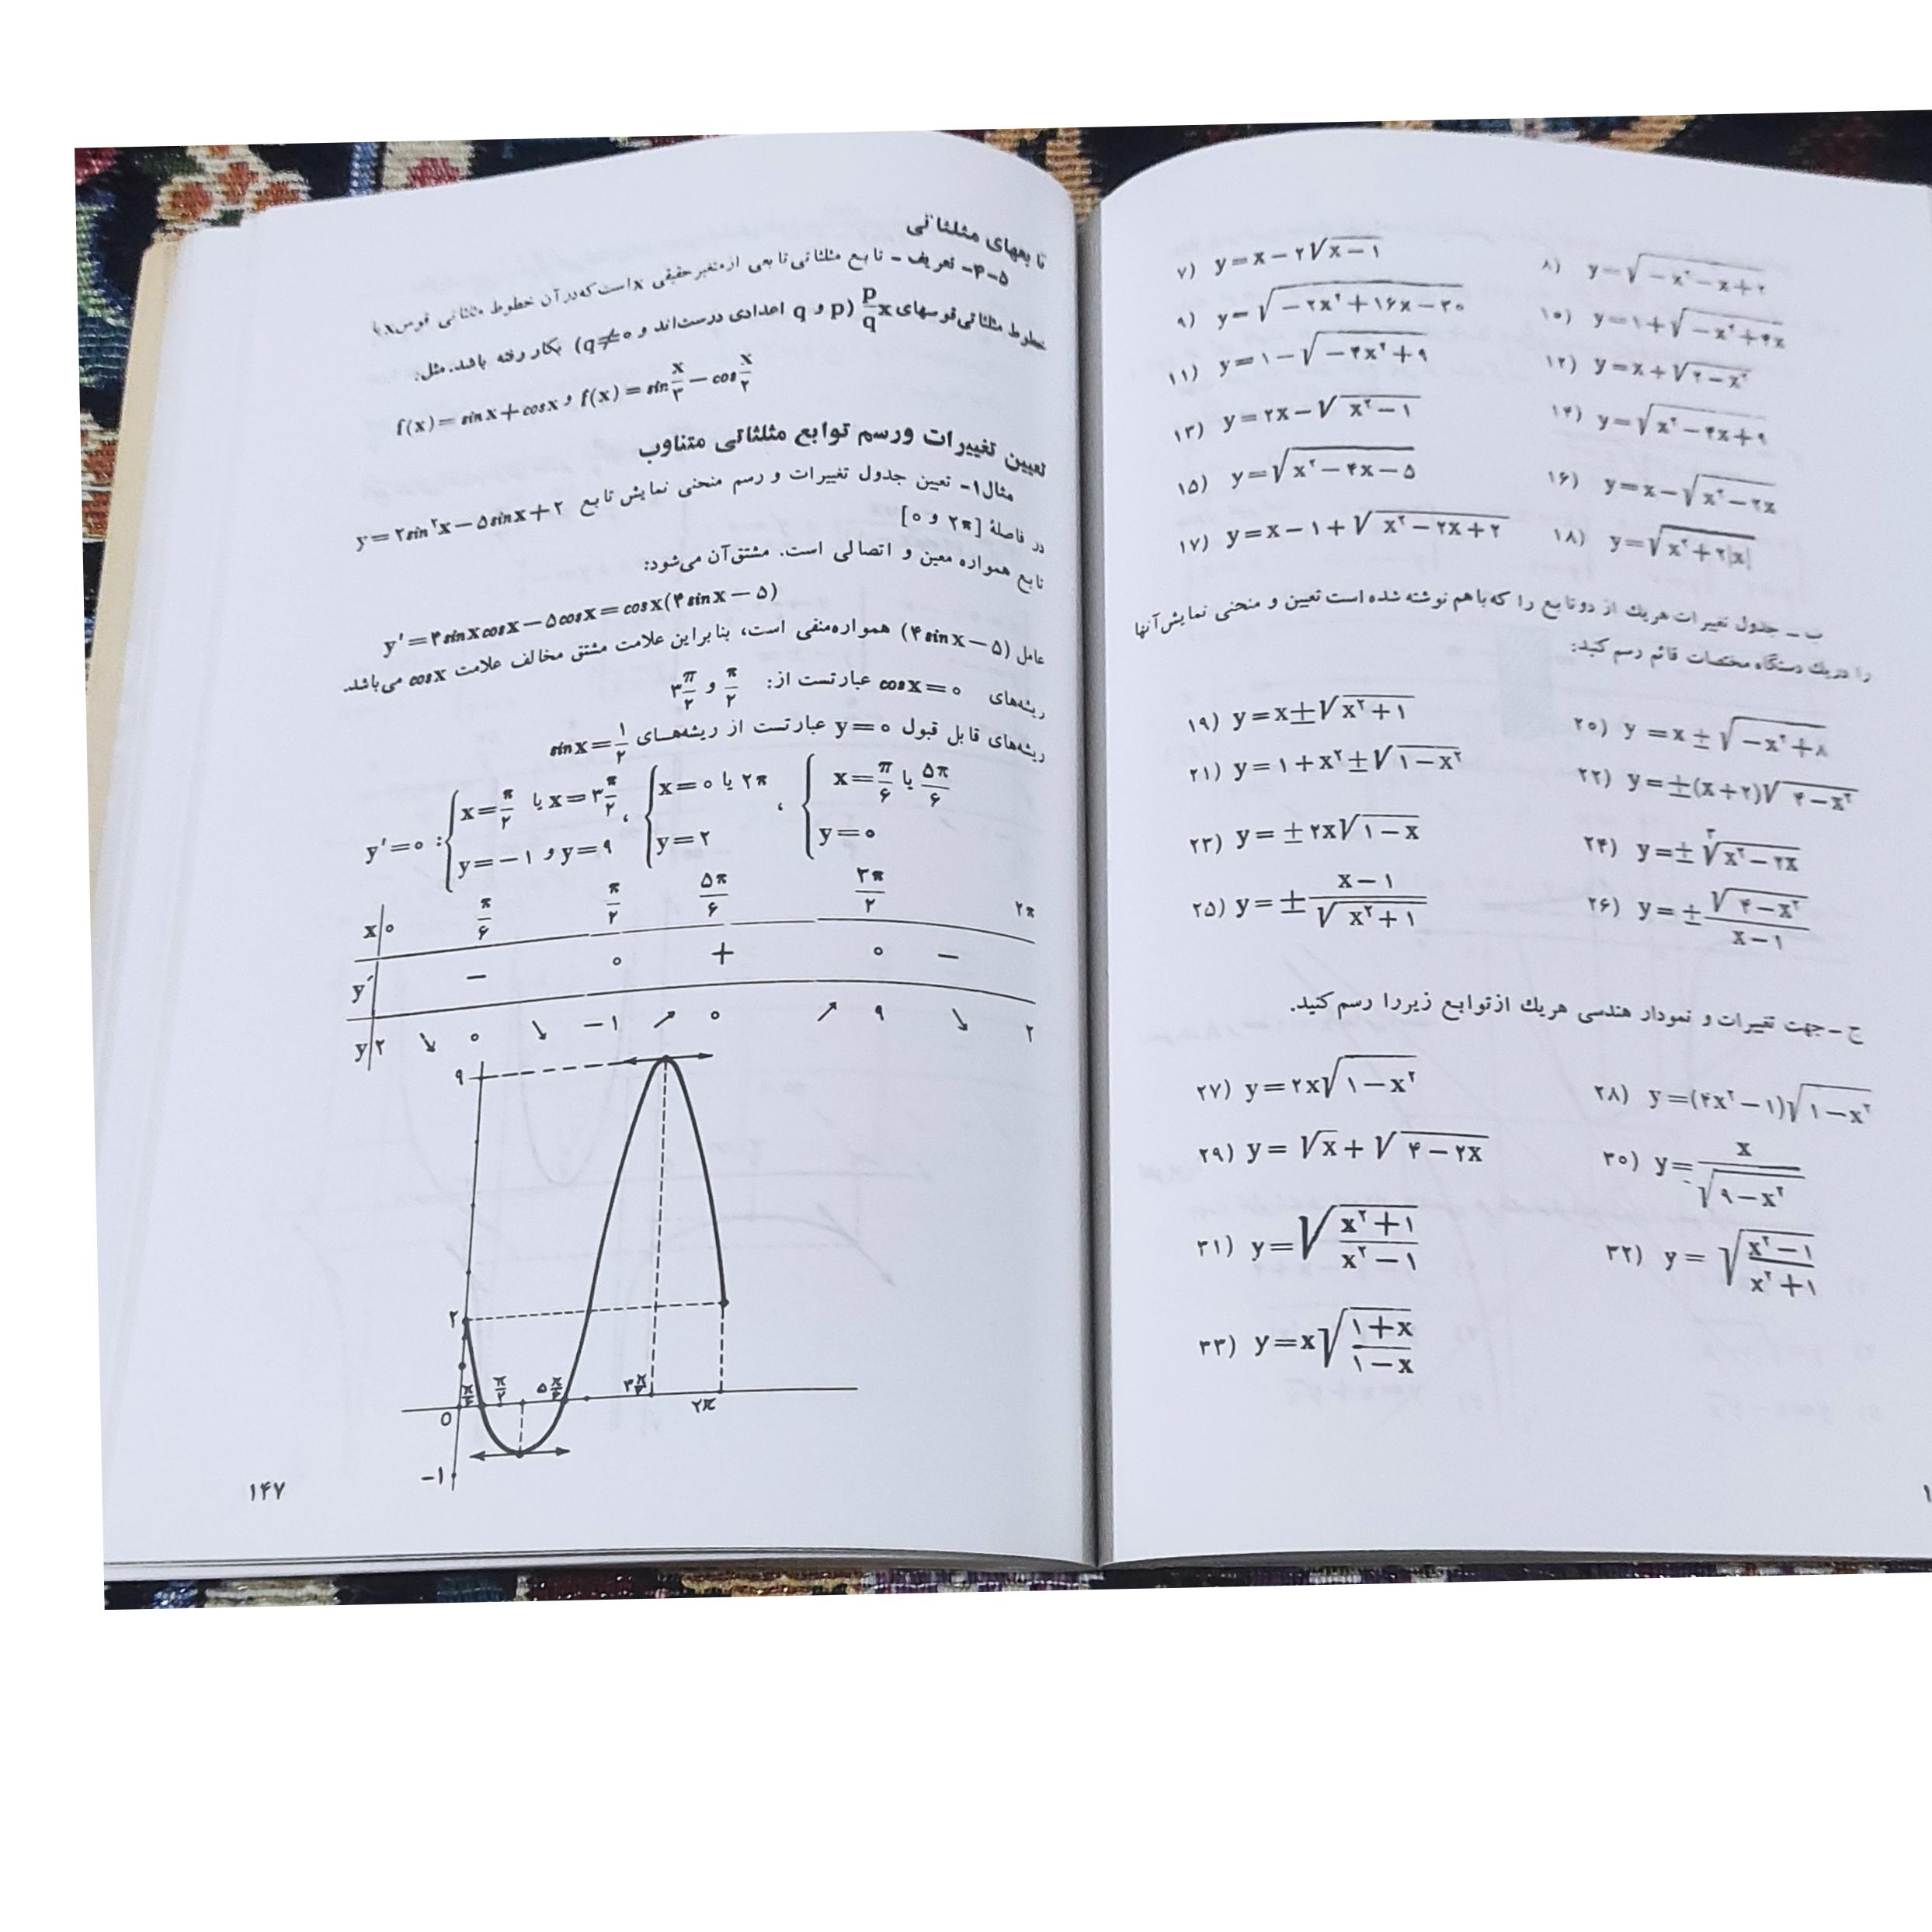 تابعهای مثلثاتی
۵-۴- تعریف - تابع مثلثاتی تابعی از متغیر حقیقی x است که در آن خطوط مثلثاتی قوس x یا
خطوط مثلثاتی قوسهای p/q x (p و q اعدادی درست‌اند و q≠۰) بکار رفته باشد. مثل:
f(x)=sinx+cosx و f(x)=sin x/۳ − cos x/۲
تعیین تغییرات ورسم توابع مثلثاتی متناوب
مثال۱- تعیین جدول تغییرات و رسم منحنی نمایش تابع y=۲sin²x−۵sinx+۲
در فاصلهٔ [۲π و ۰]
تابع همواره معین و اتصالی است. مشتق آن می‌شود:
y′=۴sinxcosx−۵cosx=cosx(۴sinx−۵)
عامل (۴sinx−۵) همواره منفی است، بنابراین علامت مشتق مخالف علامت cosx می‌باشد.
ریشه‌های cosx=۰ عبارتست از: π/۲ و ۳π/۲
ریشه‌های قابل قبول y=۰ عبارتست از ریشه‌های sinx=۱/۲
y′=۰ : { x=π/۲ یا x=۳π/۲ ، { x=۰ یا ۲π ، { x=π/۶ یا ۵π/۶
y=−۱ و y=۹ y=۲ y=۰
x ۰ π/۶ π/۲ ۵π/۶ ۳π/۲ ۲π
y′ − ۰ + ۰ −
y ۲ ↘ ۰ ↘ −۱ ↗ ۰ ↗ ۹ ↘ ۲
۹
۲
π/۶ π/۲ ۵π/۶ ۳π/۲
O ۲π
−۱
۱۴۷
۷) y=x−۲√(x−۱) ۸) y=√(−x²−x+۲)
۹) y=√(−۲x²+۱۶x−۳۰) ۱۰) y=۱+√(−x²+۴x)
۱۱) y=۱−√(−۴x²+۹) ۱۲) y=x+√(۲−x²)
۱۳) y=۲x−√(x²−۱) ۱۴) y=√(x²−۴x+۹)
۱۵) y=√(x²−۴x−۵) ۱۶) y=x−√(x²−۲x)
۱۷) y=x−۱+√(x²−۲x+۲) ۱۸) y=√(x²+۲|x|)
ب- جدول تغییرات هریك از دوتابع را که باهم نوشته شده است تعیین و منحنی نمایش آنها
را دریك دستگاه مختصات قائم رسم کنید:
۱۹) y=x±√(x²+۱) ۲۰) y=x±√(−x²+۸)
۲۱) y=۱+x²±√(۱−x²) ۲۲) y=±(x+۲)√(۴−x²)
۲۳) y=±۲x√(۱−x) ۲۴) y=±∛(x²−۲x)
۲۵) y=±(x−۱)/√(x²+۱) ۲۶) y=±√(۴−x²)/(x−۱)
ج- جهت تغییرات و نمودار هندسی هریك ازتوابع زیررا رسم کنید.
۲۷) y=۲x√(۱−x²) ۲۸) y=(۴x²−۱)√(۱−x²)
۲۹) y=√x+√(۴−۲x) ۳۰) y=x/√(۹−x²)
۳۱) y=√((x²+۱)/(x²−۱)) ۳۲) y=√((x²−۱)/(x²+۱))
۳۳) y=x√((۱+x)/(۱−x))